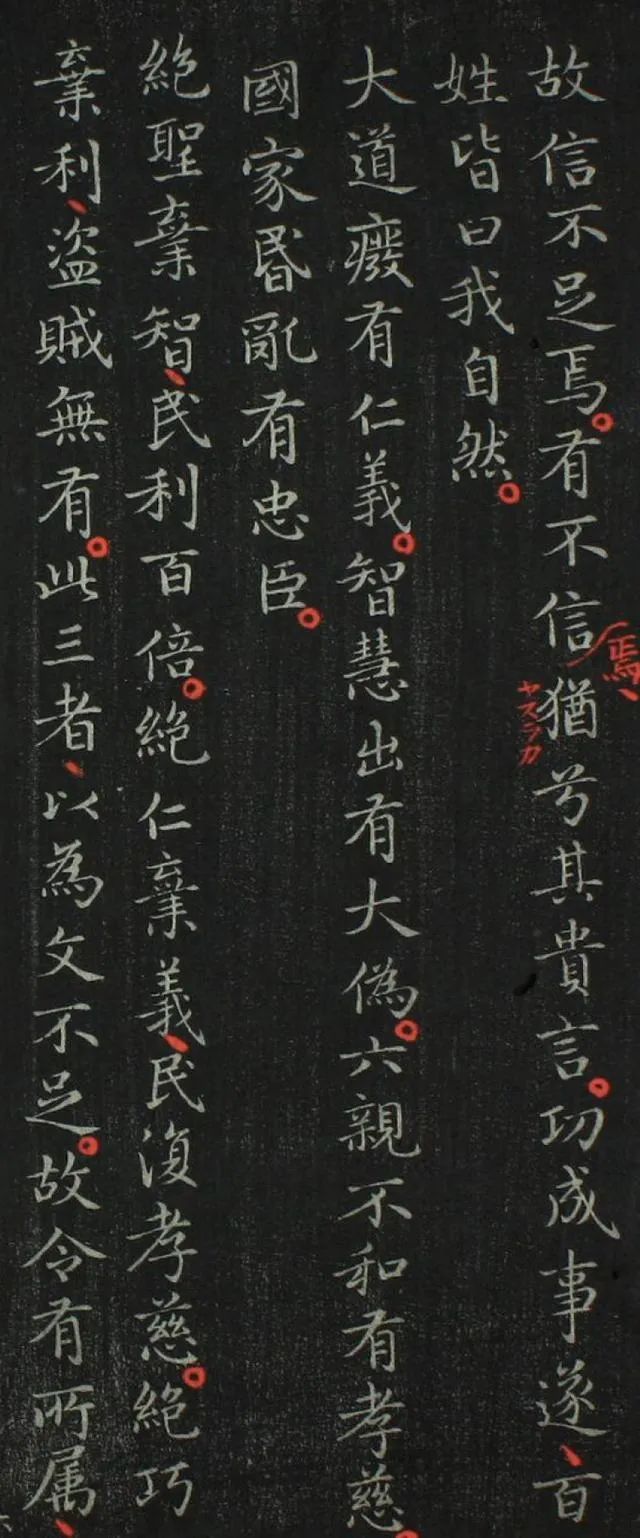 故信不足焉。有不信猶兮其貴言。功成事遂、百
焉、
ヤスラカ
姓皆曰我自然。
大道廢有仁義。智慧出有大偽。六親不和有孝慈。
國家昬亂有忠臣。
絶聖棄智、民利百倍。絶仁棄義、民復孝慈。絶巧
棄利、盗賊無有。此三者、以為文不足。故令有所属、